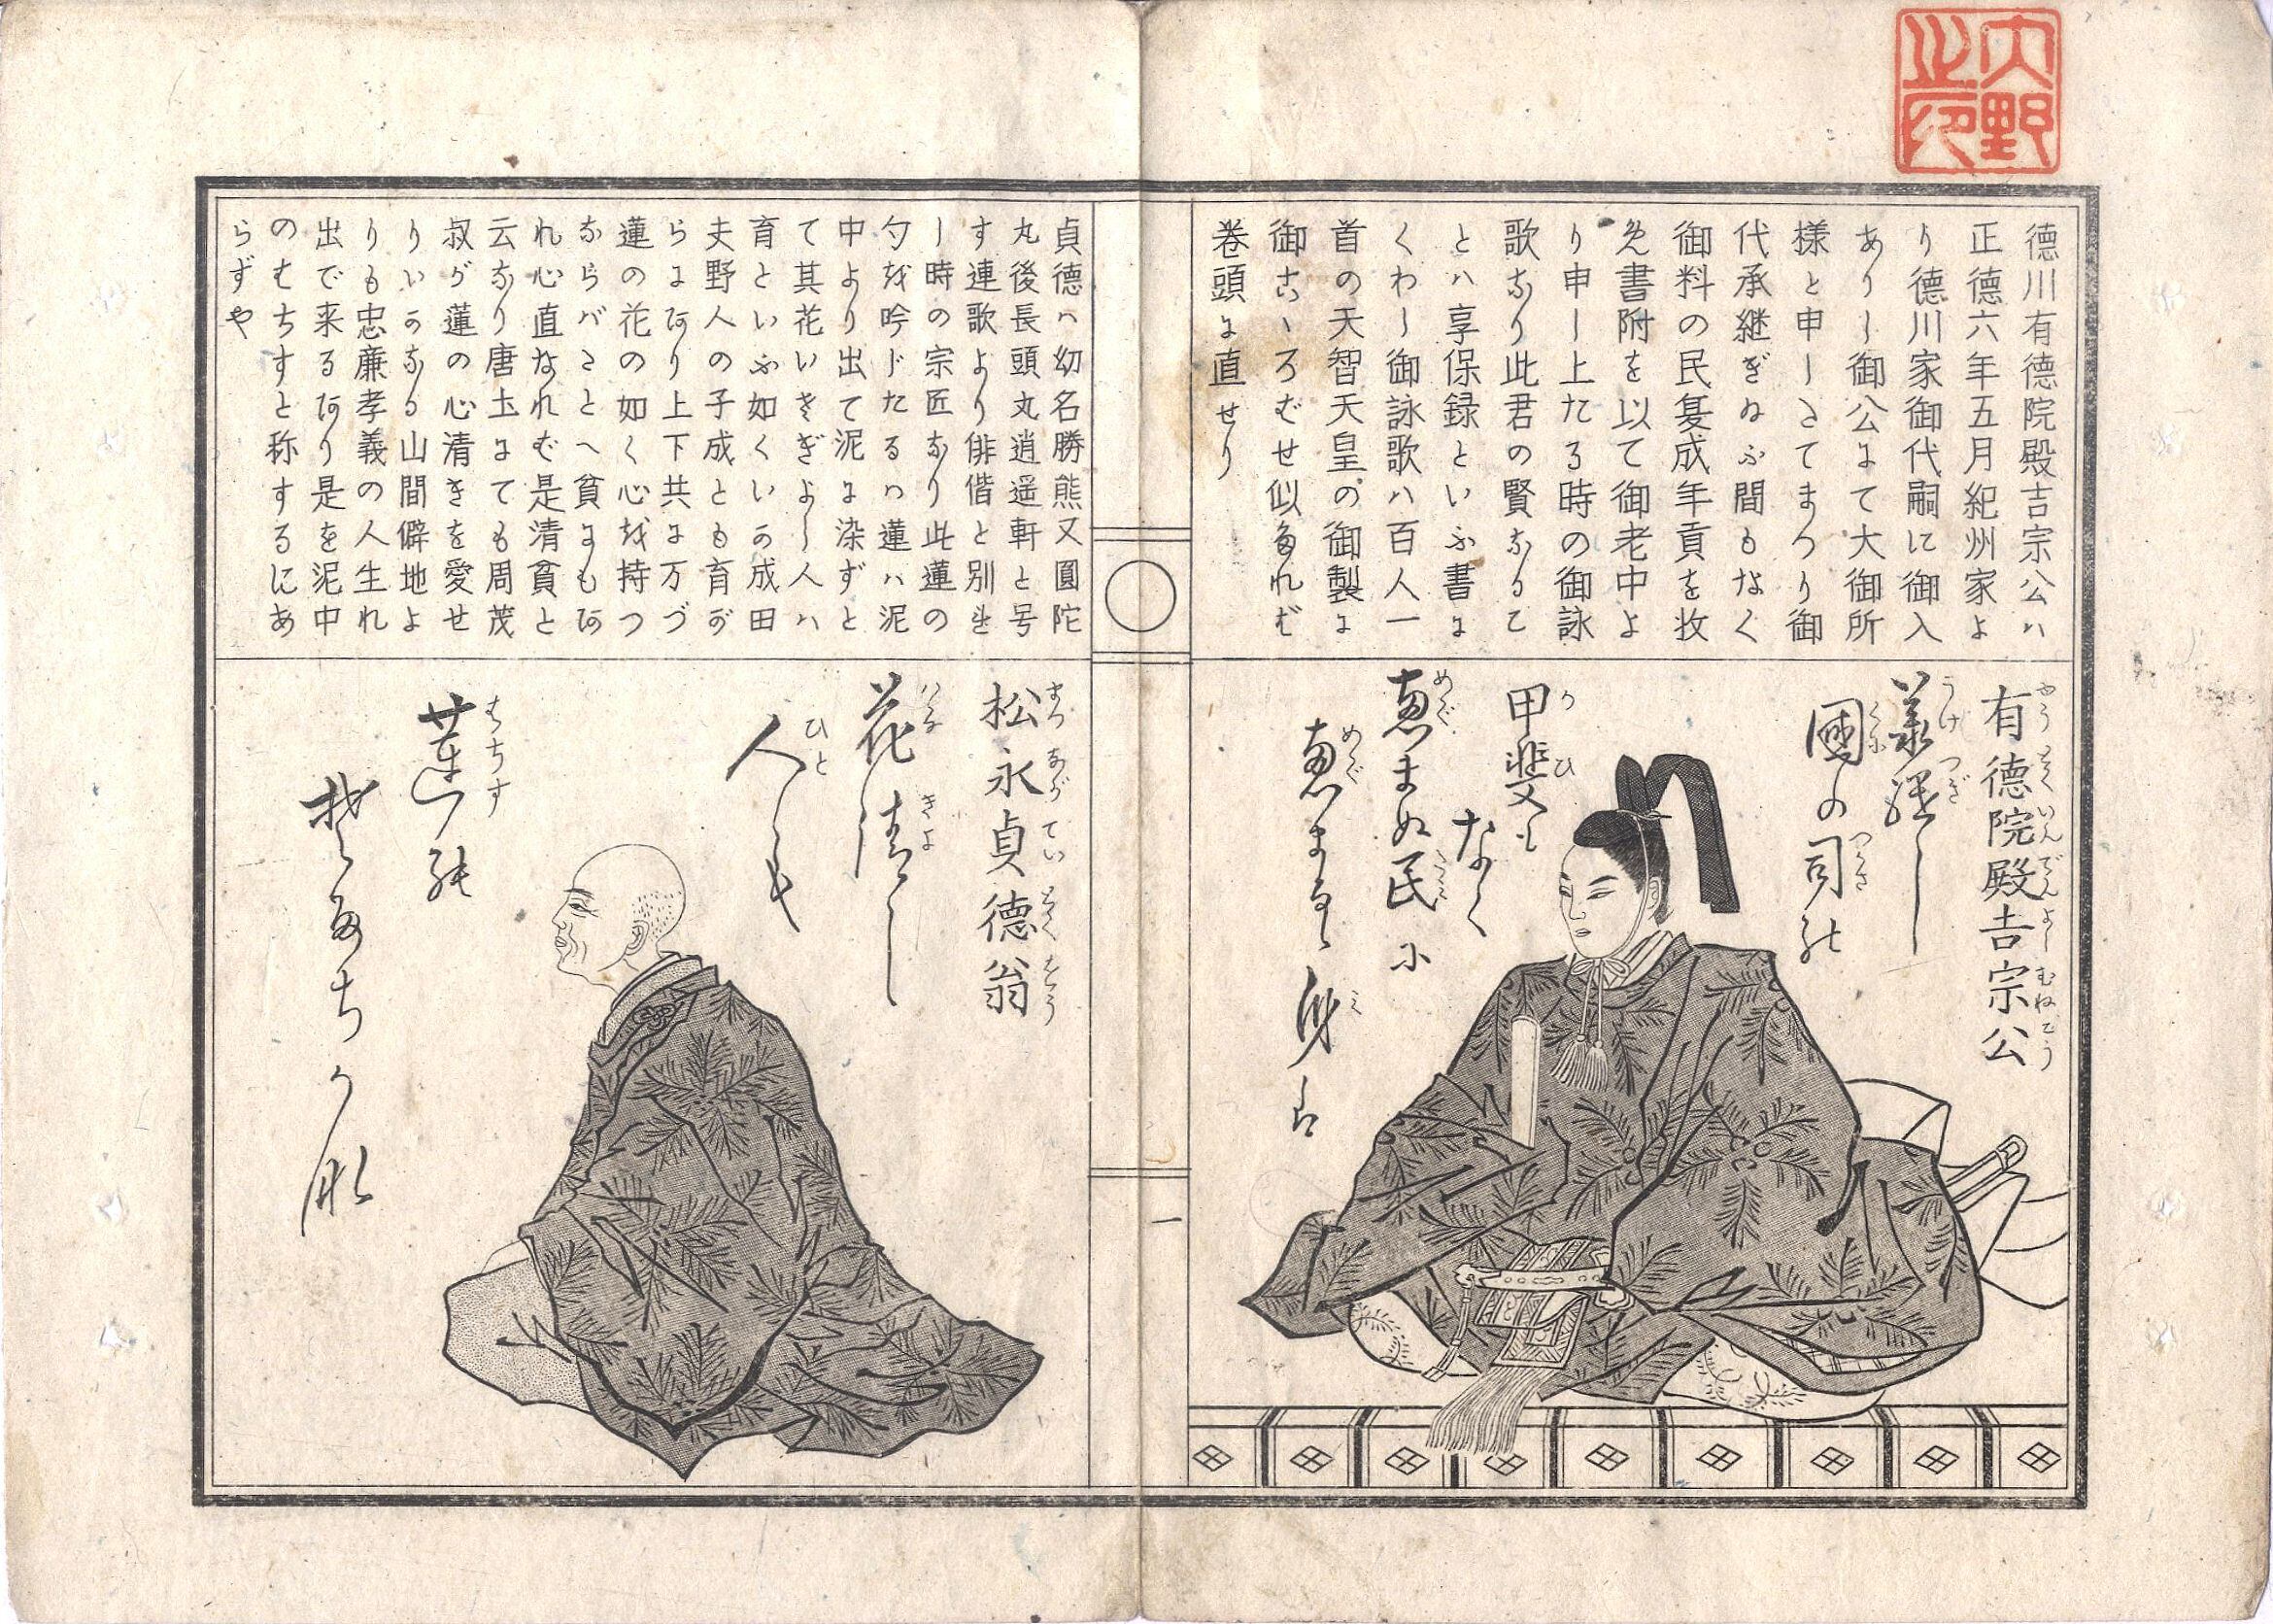 大野
之印
徳川有徳院殿吉宗公ハ
正徳六年五月紀州家よ
り徳川家御代嗣に御入
ありし御公にて大御所
様と申しさてまつり御
代承継ぎぬふ間もなく
御料の民夏成年貢を收
免書附を以て御老中よ
り申し上たる時の御詠
歌なり此君の賢なるこ
とハ享保録といふ書に
くわし御詠歌ハ百人一
首の天智天皇の御製に
御こゝろむせ似多れば
巻頭に直せり
有徳院殿吉宗公
やうとくいんでんよしむねこう
うけつぎし
國の司の
くに つかさ
甲斐もなく
かひ
恵まぬ民に
めぐ たみ
恵まるゝ身は
めぐ み
一
貞徳ハ幼名勝熊又圓陀
丸後長頭丸逍遥軒と号
す連歌より俳偕と別れ
し時の宗匠なり此蓮の
句を吟じたるハ蓮ハ泥
中より出て泥に染ずと
て其花いさぎよし人ハ
育といふ如くいか成田
夫野人の子成とも育が
らにあり上下共に万づ
蓮の花の如く心を持つ
ならバさとへ貧にもあ
れ心直なれむ是清貧と
云なり唐土にても周茂
叔が蓮の心清きを愛せ
りいかなる山間僻地よ
りも忠廉孝義の人生れ
出で来るあり是を泥中
のむちすと称するにあ
らずや
松永貞徳翁
まつながていとくをう
花清し
ハな きよ
人も
ひと
蓮の
はちす
そだちかな